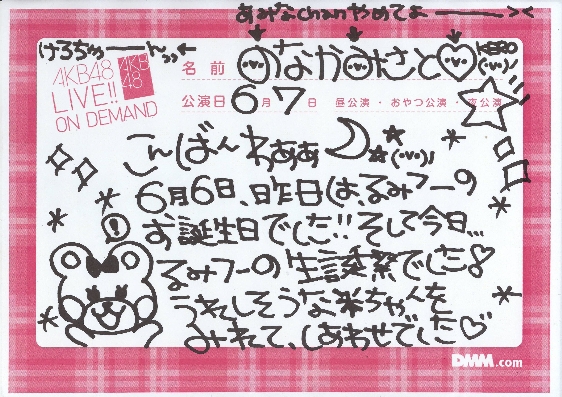 あみなchanやめてよーーー><
けろちゅーーん
AKB48
LIVE!!
ON DEMAND
AKB
48
名前 のなかみさと♡
KERO
公演日 6月7日 昼公演・おやつ公演・夜公演
こんばんわぁぁ
6月6日、昨日は、るみフーの
お誕生日でした!!そして今日...
るみフーの生誕祭でした!
うれしそうな米ちゃんを
みれて、しあわせでした♡
DMM.com